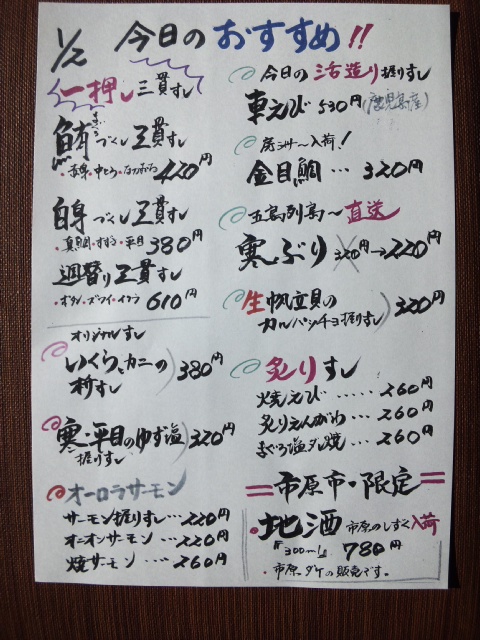 1/2 今日のおすすめ!!
一押し三貫すし
鮪づくし三貫すし
・赤身・中とろ・ 420円
白身づくし三貫すし
・真鯛・すずき・平目 380円
週替り三貫すし
・ボタン・ズワイ・イクラ 610円
オリジナルすし
いくらとカニの
押すし 380円
寒・平目のゆず塩
握りすし 320円
オーロラサーモン
サーモン握りすし…220円
オニオンサーモン…220円
焼サーモン…260円
今日の活造り握りすし
車えび 530円(鹿児島産)
入荷!
金目鯛… 320円
五島列島〜直送
寒ぶり 320円→220円
生帆立貝の
カルパッチョ握りすし 320円
炙りすし
焼えび……260円
炙りえんがわ…260円
まぐろ塩ダレ焼…260円
=市原市・限定=
・地酒 市原のしずく入荷
300ml 780円
・市原、ダケの販売です。